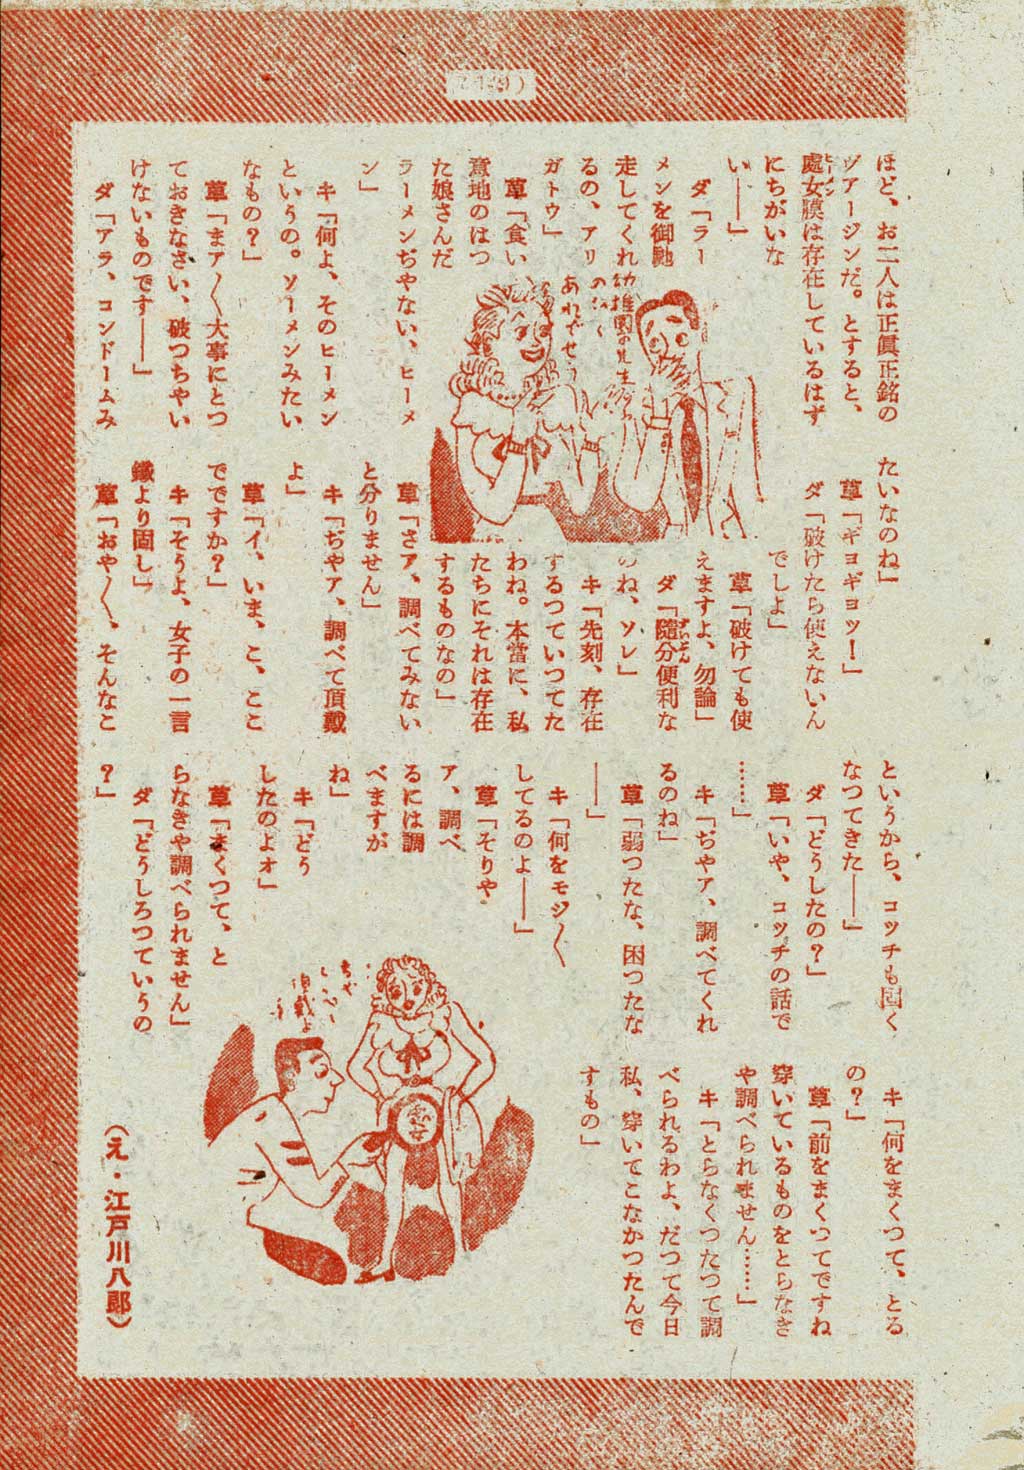 ほど、お二人は正眞正銘の
ヴアージンだ。とすると、
處女膜は存在しているはず
ヒーメン
にちがいな
い――」
ダ「ラー
メンを御馳
走してくれ
るの、アリ
ガトウ」
草「食い
意地のはつ
た娘さんだ
ラーメンぢやない、ヒーメ
ン」
キ「何よ、そのヒーメン
というの。ソーメンみたい
なもの?」
草「まア〱大事にとつ
ておきなさい、破つちやい
けないものです――」
ダ「アラ、コンドームみ
たいなのね」
草「ギヨギヨツー」
ダ「破けたら使えないん
でしよ」
草「破けても使
えますよ、勿論」
ダ「隨分便利な
ずいぶん
のね、ソレ」
キ「先刻、存在
するつていつてた
わね。本當に、私
たちにそれは存在
するものなの」
草「さア、調べてみない
と分りません」
キ「ぢやア、調べて頂戴
よ」
草「イ、いま、こ、ここ
でですか?」
キ「そうよ、女子の一言
鐵より固し」
草「おや〱、そんなこ
というから、コツチも固く
なつてきた――」
ダ「どうしたの?」
草「いや、コツチの話で
……」
キ「ぢやア、調べてくれ
るのね」
草「弱つたな、困つたな
――」
キ「何をモジ〱
してるのよ――」
草「そりや
ア、調べ
るには調
べますが
ね」
キ「どう
したのよオ」
草「まくつて、と
らなきや調べられません」
ダ「どうしろつていうの
?」
キ「何をまくつて、とる
の?」
草「前をまくつてですね
穿いているものをとらなき
や調べられません……」
キ「とらなくつたつて調
べられるわよ、だつて今日
私、穿いてこなかつたんで
すもの」
(え・江戸川八郎)
幼稚園の先生
頂戴よ
処女